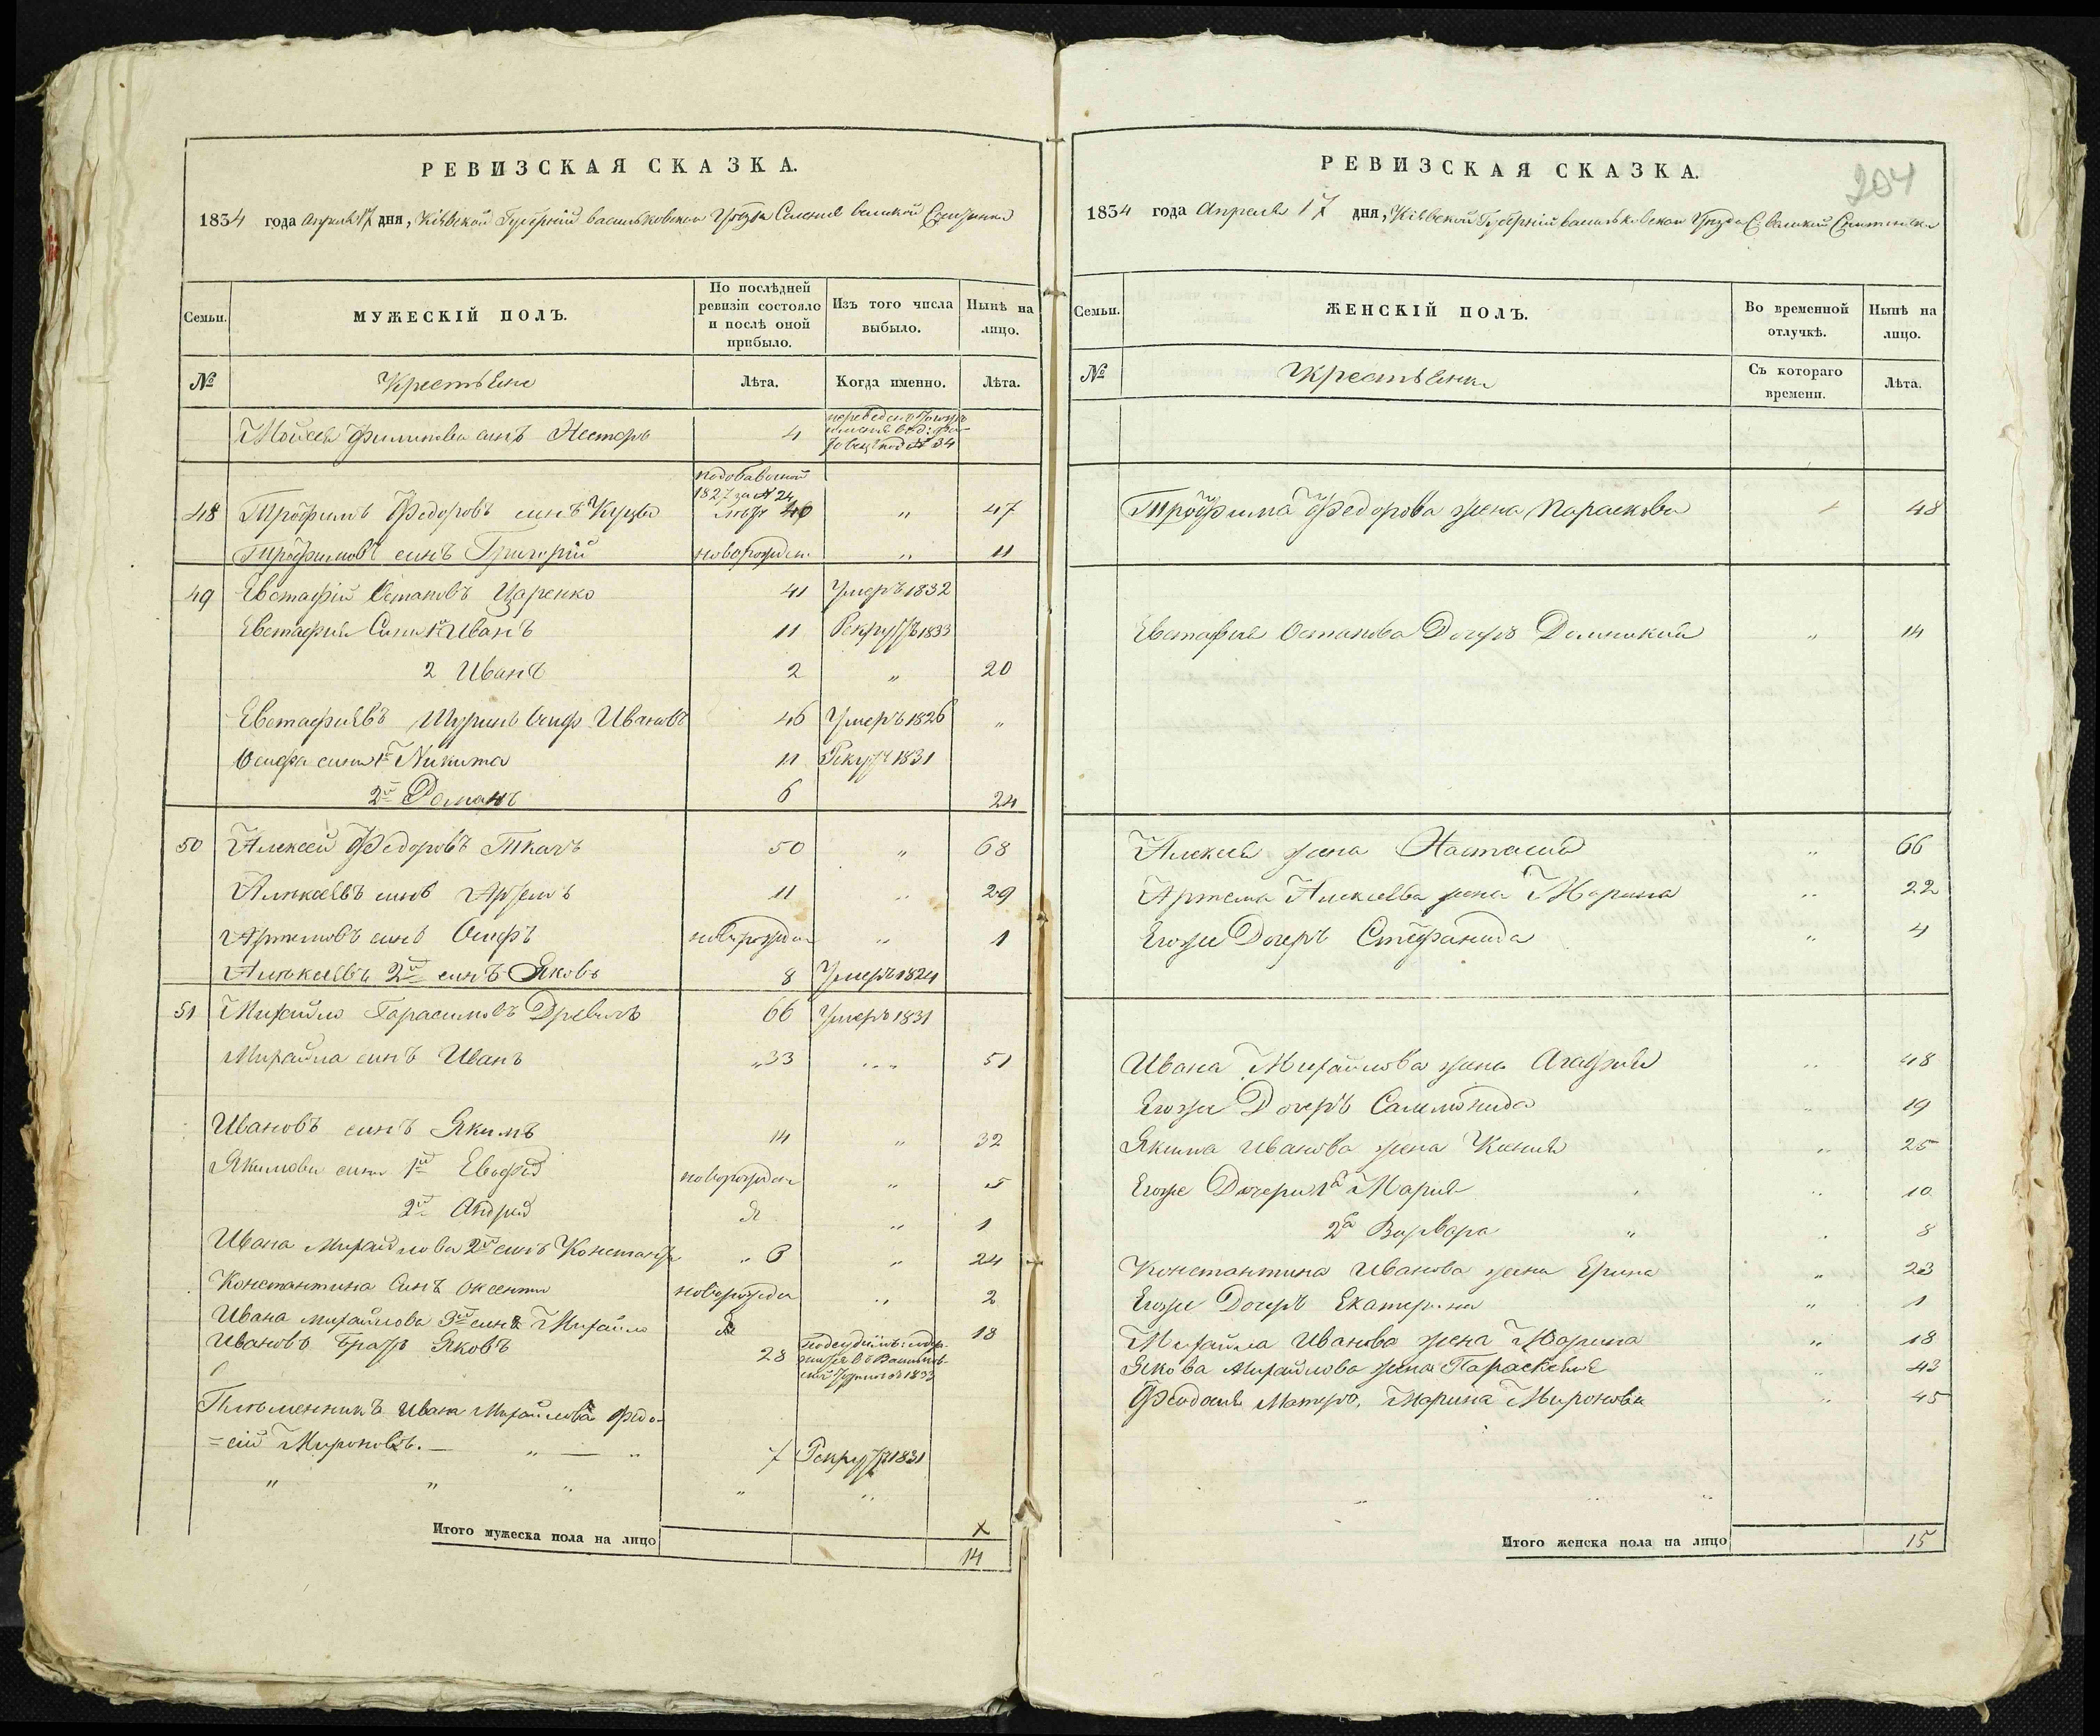 РЕВИЗСКАЯ СКАЗКА.
1834 года Апреля 17 дня, Кіевской Губерніи васильковскаго Уезда Селенія великой
Семьи.
МУЖЕСКІЙ ПОЛЪ.
По послѣдней
ревизіи состояло
и послѣ оной
прибыло.
Изъ того числа
выбыло.
Нынѣ на
лицо.
№
Крестьяне
Лѣта.
Когда именно.
Лѣта.
Мойсея Филипова синъ Несторъ 4
34
1827 за № 24
48 Трофимъ Федоровъ синъ 40 „ 47
Трофимовъ синъ Григорій новорожден „ 11
49 Евстафій Остаповъ Царенко 41 Умеръ 1832
Евстафія Сини 1й Иванъ 11 Рекрутъ 1833
2 Иванъ 2 „ 20
Евстафіевъ Шуринъ Осифъ Ивановъ 46 Умеръ 1826 „
Осифа сини 1й Никита 11 Рекрутъ 1831
2й Романъ 6 24
50 Алексей Федоровъ Ткачъ 50 „ 68
Алексеевъ синъ Артемъ 11 „ 29
Артемовъ синъ Осифъ новорожден „ 1
Алексеевъ 2й синъ Яковъ 8 Умеръ 1824
51 Михайло Гарасимовъ 66 Умеръ 1831
Михайла синъ Иванъ „ 33 „ „ 51
Ивановъ синъ Якимъ 14 „ 32
Якимови сини 1й новорожден „ 5
2й Андрей „ 1
Ивана Михайлова 2й синъ „ 6 „ 24
Константина Синъ Оксентій новорожден „ 2
Ивана михайлова 3й синъ Михайло 18
Ивановъ братъ Яковъ 28
1833
Племенникъ Ивана Михайлова Федо-
=сій Мироновъ. — „ — „ 7 Рекрутъ 1831
„ „ „ „ „
Итого мужеска пола на лицо
x
14
204
РЕВИЗСКАЯ СКАЗКА.
1834 года Апреля 17 дня, Кіевской Губерніи васильковскаго Уезда С. великой
Семьи.
ЖЕНСКІЙ ПОЛЪ.
Во временной
отлучкѣ.
Нынѣ на
лицо.
№
Крестьянки
Съ котораго
времени.
Лѣта.
Трофима Федорова жена Параскова 48
Евстафія Остапова Дочеръ Домникія „ 14
Алексея жена Настасія „ 66
Артема Алексеева жена Марина „ 22
Егоже Дочеръ Стефанида „ 4
Ивана Михайлова жена Агафия „ 48
Егоже Дочеръ Саломонида „ 19
Якима Иванова жена Ксения „ 25
Егоже Дочери 1а Мария „ 10
2а Варвара „ 8
Константина Иванова жена Ерина „ 23
Егоже Дочеръ Екатерина „ 1
Михайла Иванова жена Марина „ 18
Якова Михайлова жена Параскевія „ 43
Феодосія Матеръ, Марина Миронова „ 45
Итого женска пола на лицо
15